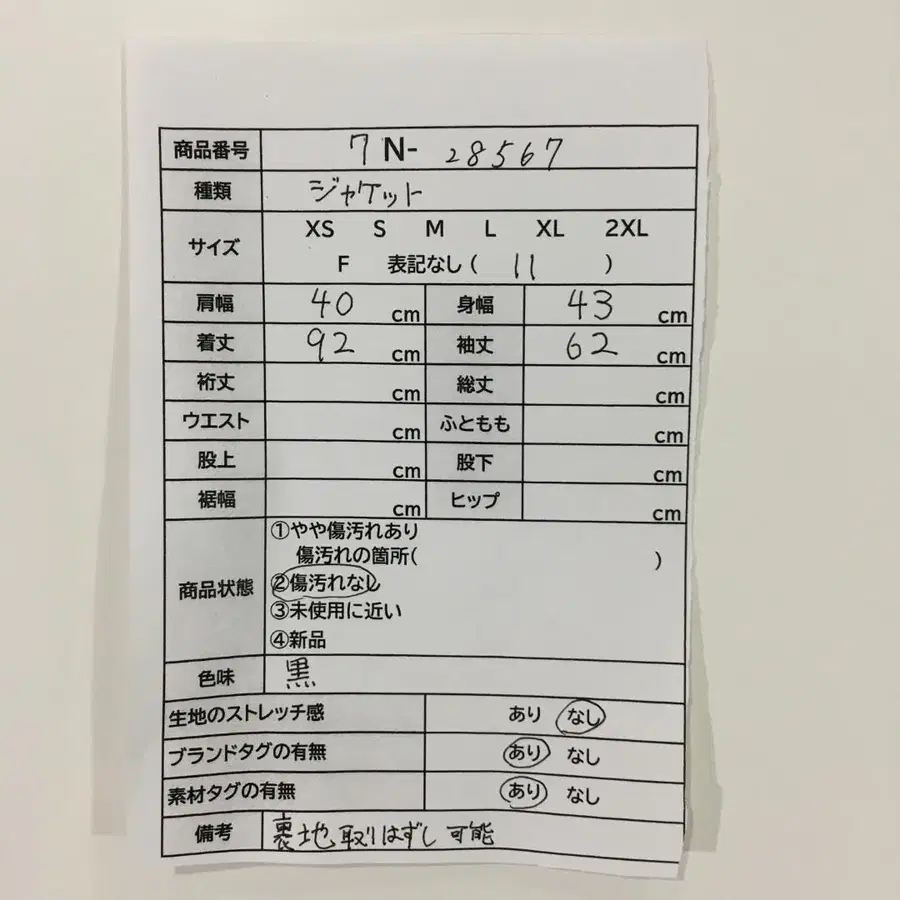 商品番号 7 N- 28567
種類 ジャケット
サイズ XS S M L XL 2XL
F 表記なし ( 11 )
肩幅 40 cm 身幅 43 cm
着丈 92 cm 袖丈 62 cm
裄丈 cm 総丈 cm
ウエスト cm ふともも cm
股上 cm 股下 cm
裾幅 cm ヒップ cm
商品状態 ①やや傷汚れあり
傷汚れの箇所( )
②傷汚れなし
③未使用に近い
④新品
色味 黒
生地のストレッチ感 あり なし
ブランドタグの有無 あり なし
素材タグの有無 あり なし
備考 裏地取りはずし可能